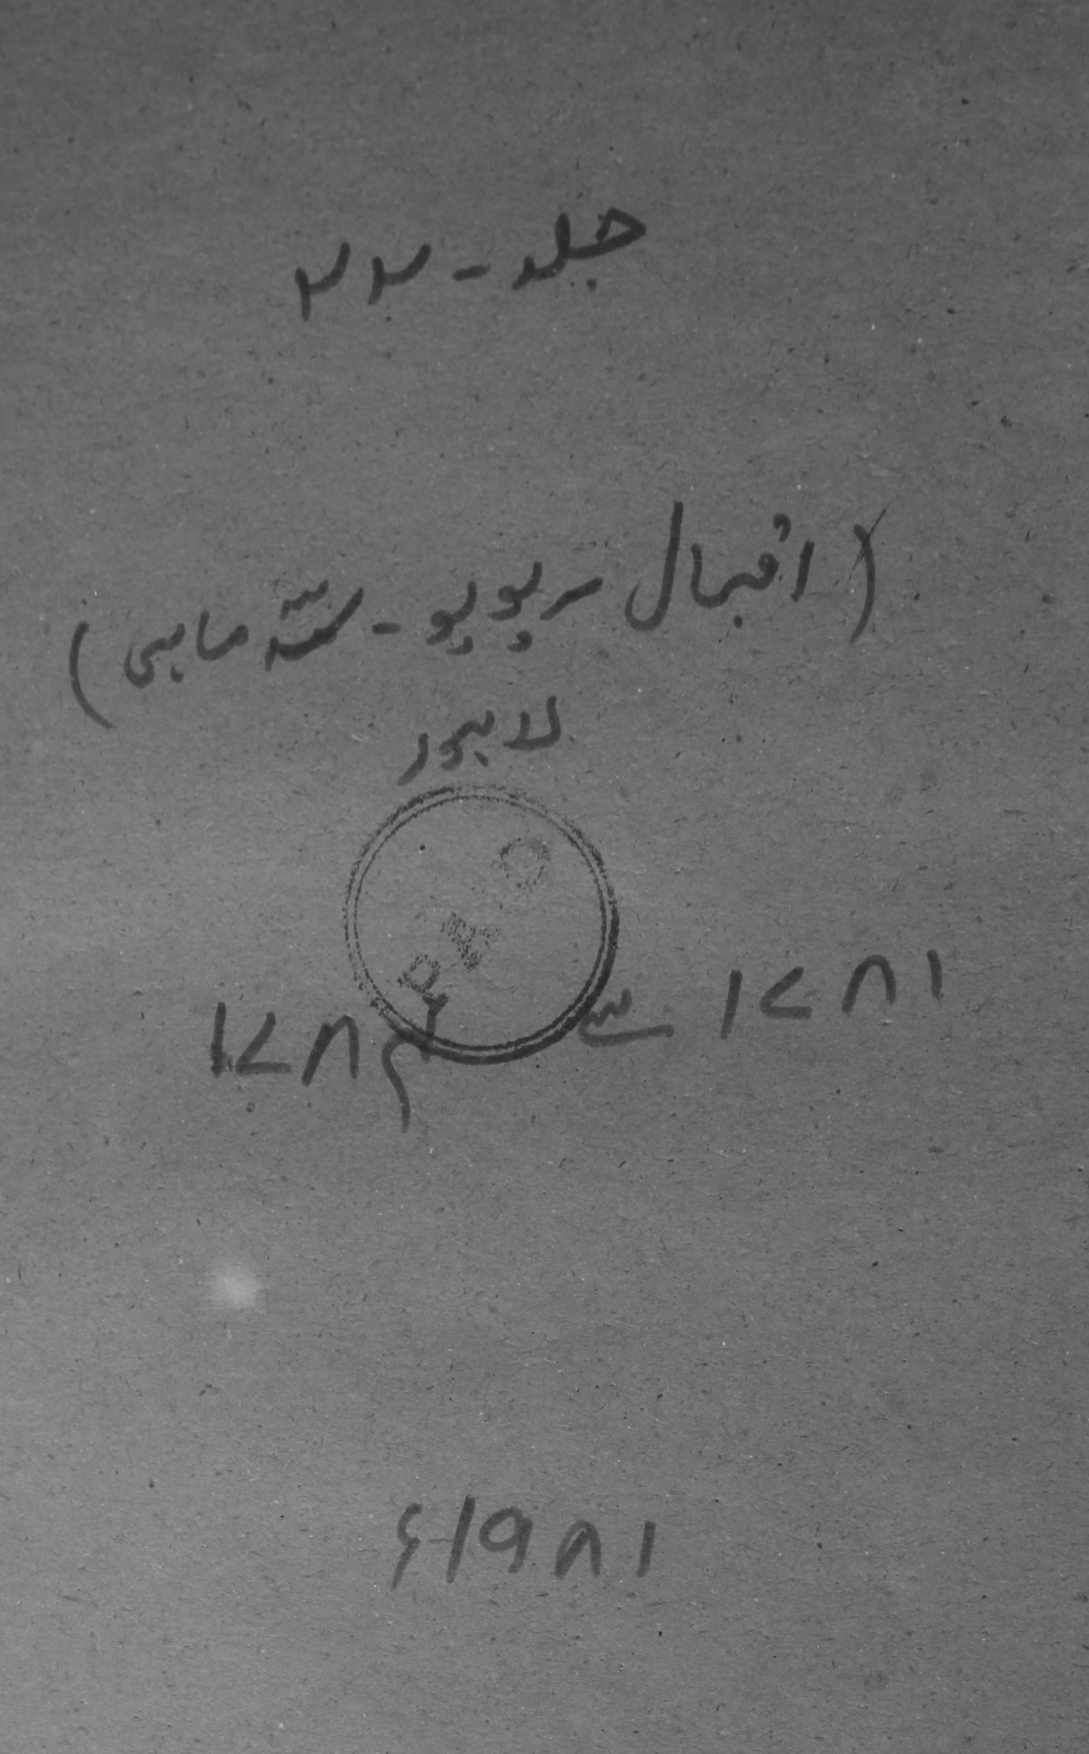 جلد - ۲۲
(اقبال ریویو - سہ ماہی)
لاہور
۱۷۸۱ سے ۱۷۸۴
۱۹۸۱ء